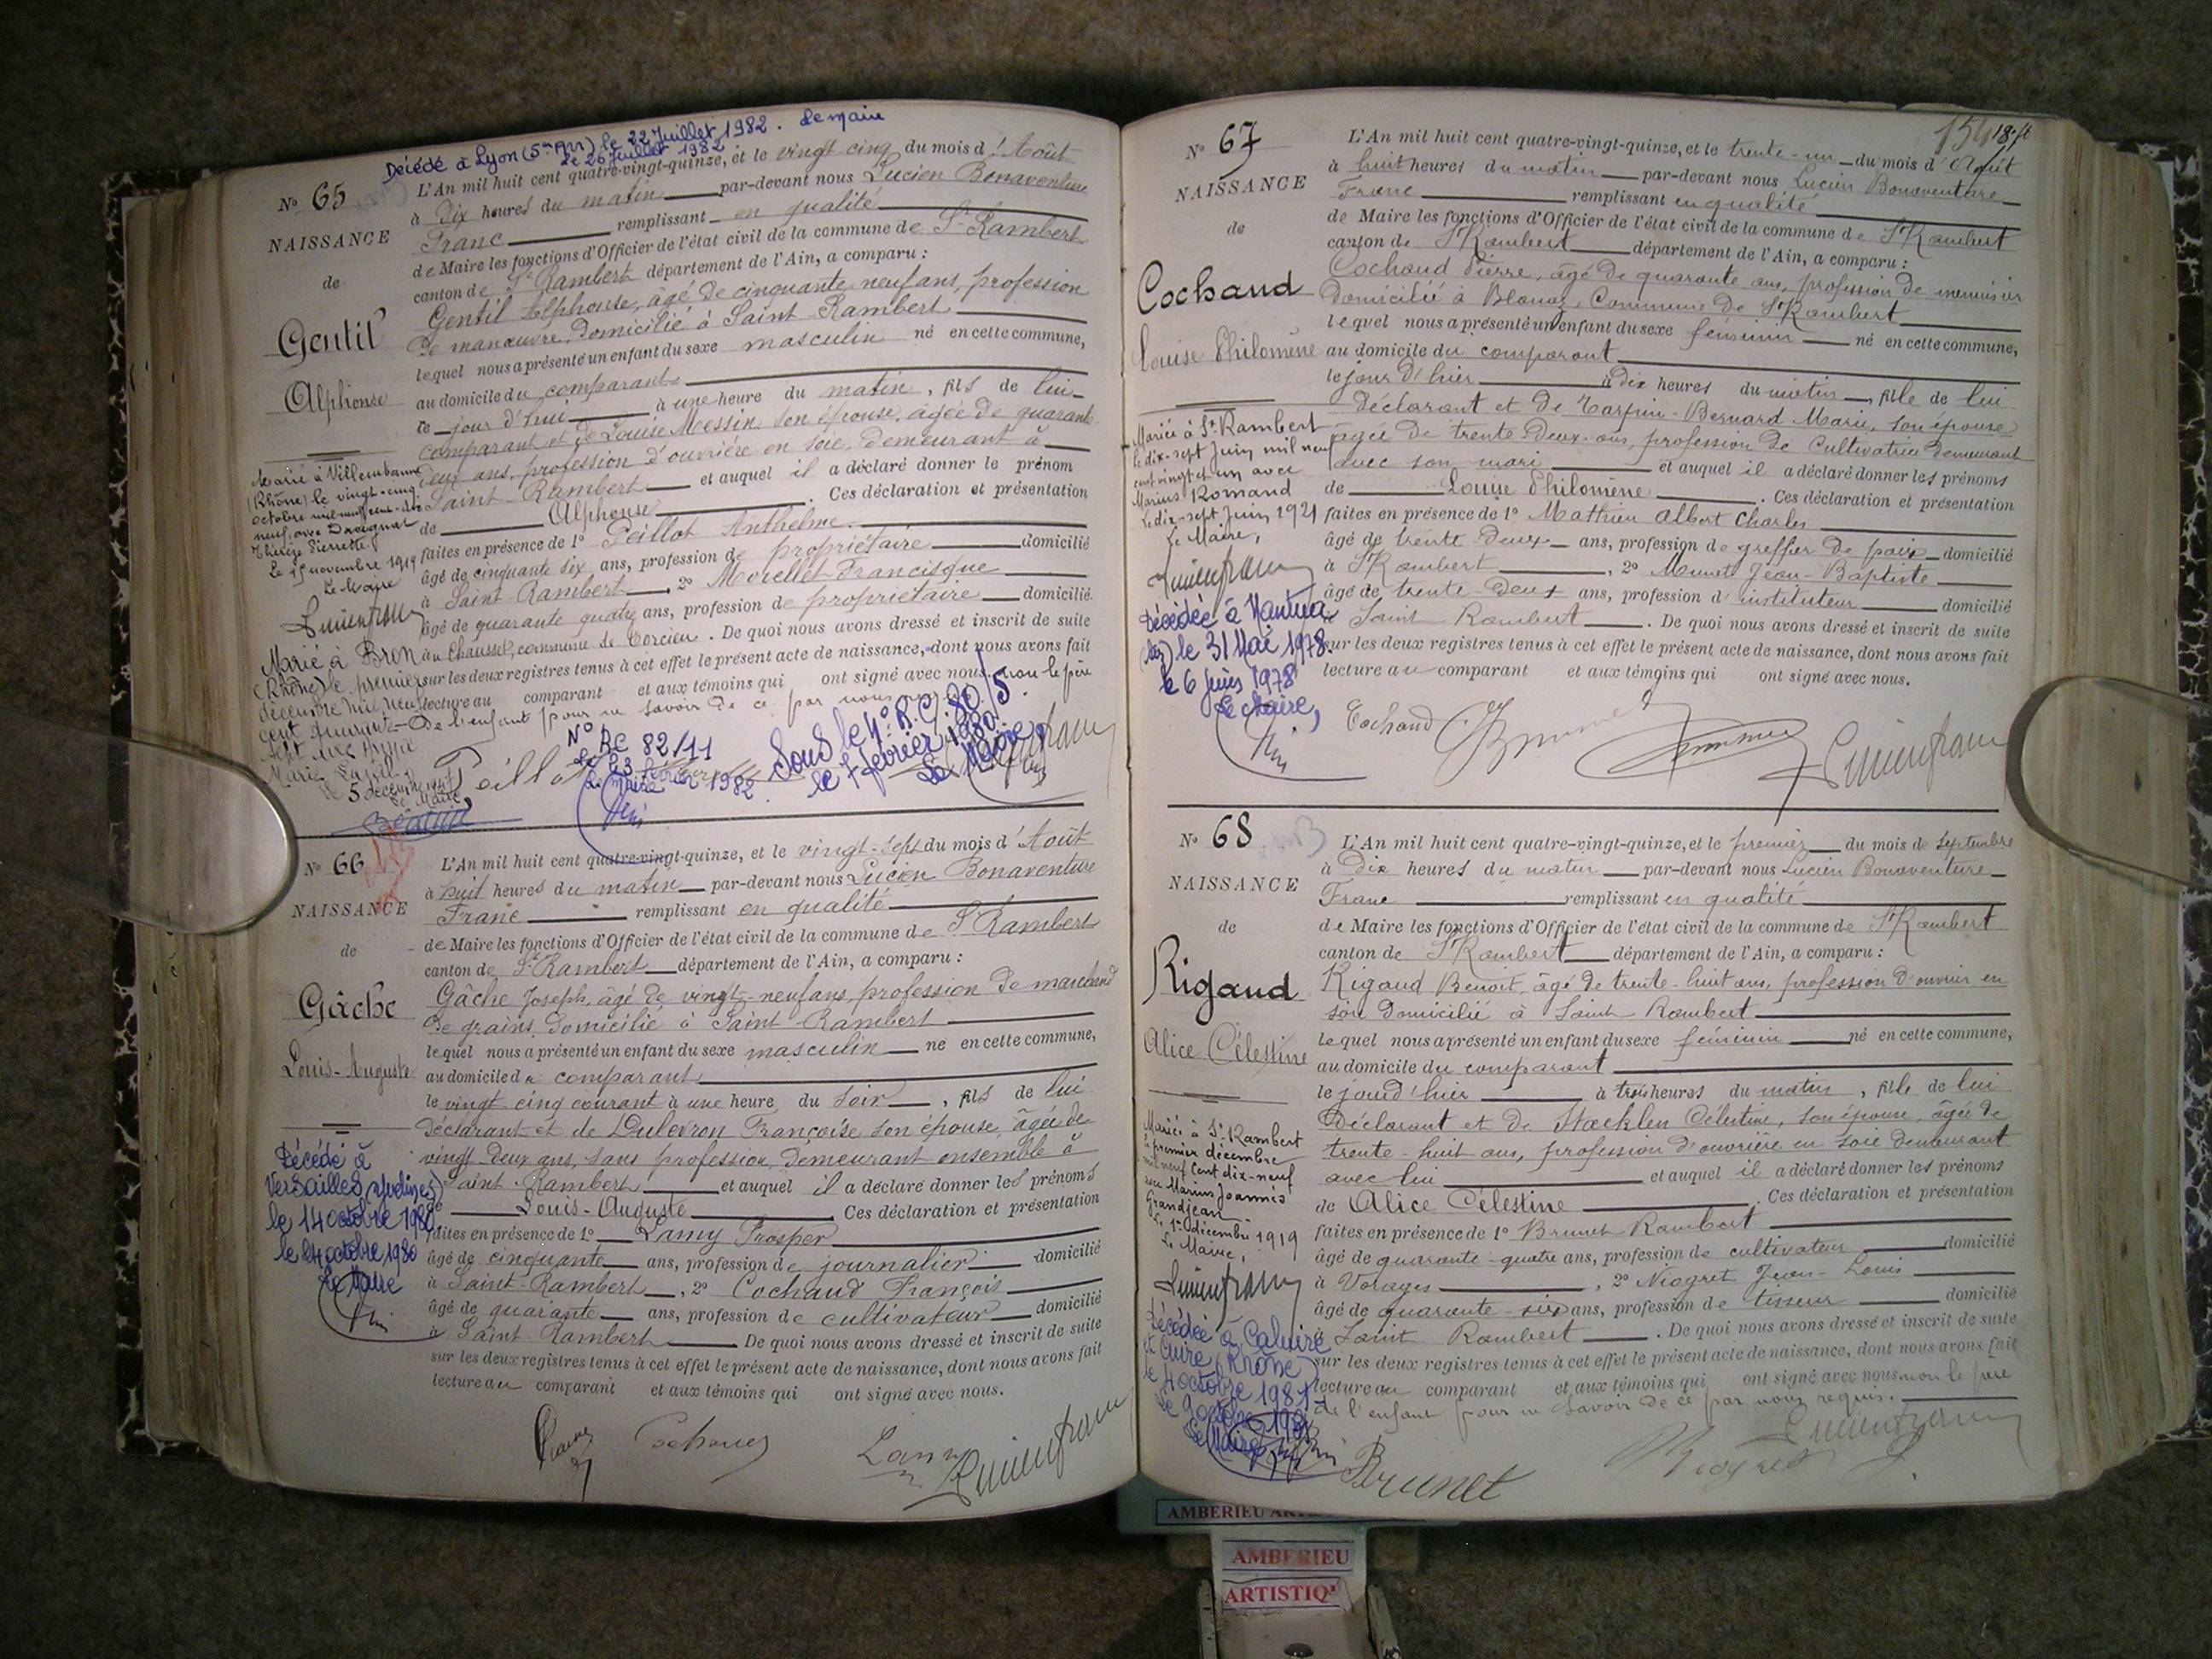 Décédé à Lyon (5ème Arr) le 22 Juillet 1982. Le Maire
le 26 Juillet 1982
N° 65
NAISSANCE
de
Gentil
Alphonse
L'An mil huit cent quatre-vingt-quinze, et le vingt cinq du mois d'Août
à Dix heures du matin par-devant nous Lucien Bonaventure
Franc remplissant en qualité
de Maire les fonctions d'Officier de l'état civil de la commune de St Rambert
canton de St Rambert département de l'Ain, a comparu :
Gentil Alphonse, âgé de cinquante neuf ans, profession
de manœuvre, domicilié à Saint-Rambert
lequel nous a présenté un enfant du sexe masculin né en cette commune,
au domicile du comparant
le jour d'hui à une heure du matin, fils de lui
comparant et de Louise Messin son épouse, âgée de quarante
deux ans, profession d'ouvrière en soie, demeurant à
Saint-Rambert et auquel il a déclaré donner le prénom
de Alphonse. Ces déclaration et présentation
faites en présence de 1° Peillot Anthelme
âgé de cinquante six ans, profession de propriétaire domicilié
à Saint-Rambert, 2° Morellet Francisque
âgé de quarante quatre ans, profession de propriétaire domicilié
au Chausset, commune de Torcieu. De quoi nous avons dressé et inscrit de suite
sur les deux registres tenus à cet effet le présent acte de naissance, dont nous avons fait
lecture au comparant et aux témoins qui ont signé avec nous, non le père
de l'enfant pour ne savoir de ce par nous
Marié à Villeurbanne
(Rhône) le vingt-cinq
octobre mil neuf cent dix
neuf, avec
Thérèse Pierrette
Le 15 novembre 1919
Le Maire
Lucien franc
Marié à Bron
(Rhône) le premier
décembre mil neuf
cent quarante-
sept avec
Marie
le 5 décembre 1947
Le Maire
Peillot
N° RC 82/11
le 23 février 1982
Le Maire
Sous le n° R.C. 80/5.
le 7 février 1980.
Le Maire,
N° 66
NAISSANCE
de
Gâche
Louis-Auguste
L'An mil huit cent quatre-vingt-quinze, et le vingt-sept du mois d'Août
à huit heures du matin par-devant nous Lucien Bonaventure
Franc remplissant en qualité
de Maire les fonctions d'Officier de l'état civil de la commune de St Rambert
canton de St Rambert département de l'Ain, a comparu :
Gâche Joseph, âgé de vingt-neuf ans, profession de marchand
de grains domicilié à Saint-Rambert
lequel nous a présenté un enfant du sexe masculin né en cette commune,
au domicile du comparant
le vingt cinq courant à une heure du soir, fils de lui
déclarant et de Dulevron Françoise son épouse, âgée de
vingt deux ans, sans profession, demeurant ensemble à
Saint-Rambert et auquel il a déclaré donner les prénoms
de Louis-Auguste Ces déclaration et présentation
faites en présence de 1° Lamy Prosper
âgé de cinquante ans, profession de journalier domicilié
à Saint-Rambert, 2° Cochaud François
âgé de quarante ans, profession de cultivateur domicilié
à Saint-Rambert De quoi nous avons dressé et inscrit de suite
sur les deux registres tenus à cet effet le présent acte de naissance, dont nous avons fait
lecture au comparant et aux témoins qui ont signé avec nous.
Décédé à
Versailles (Yvelines)
le 14 octobre 1980.
le 24 octobre 1980
Le Maire
Lamy
Lucien franc
154
N° 67
NAISSANCE
de
Cochaud
Louise Philomène
L'An mil huit cent quatre-vingt-quinze, et le trente-un du mois d'Août
à huit heures du matin par-devant nous Lucien Bonaventure
Franc remplissant en qualité
de Maire les fonctions d'Officier de l'état civil de la commune de St Rambert
canton de St Rambert département de l'Ain, a comparu :
Cochaud Pierre, âgé de quarante ans, profession de menuisier
domicilié à Blanaz, Commune de St Rambert
lequel nous a présenté un enfant du sexe féminin né en cette commune,
au domicile du comparant
le jour d'hier à dix heures du matin, fille de lui
déclarant et de Tarpin-Bernard Marie, son épouse
âgée de trente-deux ans, profession de cultivatrice demeurant
avec son mari et auquel il a déclaré donner les prénoms
de Louise Philomène. Ces déclaration et présentation
faites en présence de 1° Mathieu Albert Charles
âgé de trente deux ans, profession de greffier de paix domicilié
à St Rambert, 2° Munet Jean-Baptiste
âgé de trente-deux ans, profession d'instituteur domicilié
à Saint Rambert. De quoi nous avons dressé et inscrit de suite
sur les deux registres tenus à cet effet le présent acte de naissance, dont nous avons fait
lecture au comparant et aux témoins qui ont signé avec nous.
Mariée à St Rambert
le dix-sept Juin mil neuf
cent vingt et un avec
Marius Romand
Le dix-sept Juin 1921
Le Maire,
Lucien franc
Décédée à Nantua
(Ain) le 31 Mai 1978.
le 6 juin 1978
Le Maire,
Cochaud
Lucien franc
N° 68
NAISSANCE
de
Rigaud
Alice Célestine
L'An mil huit cent quatre-vingt-quinze, et le premier du mois de Septembre
à Dix heures du matin par-devant nous Lucien Bonaventure
Franc remplissant en qualité
de Maire les fonctions d'Officier de l'état civil de la commune de St Rambert
canton de St Rambert département de l'Ain, a comparu :
Rigaud Benoit, âgé de trente-huit ans, profession d'ouvrier en
soie domicilié à Saint-Rambert
lequel nous a présenté un enfant du sexe féminin né en cette commune,
au domicile du comparant
le jour d'hier à trois heures du matin, fille de lui
déclarant et de Stoecklen Célestine, son épouse, âgée de
trente-huit ans, profession d'ouvrière en soie demeurant
avec lui et auquel il a déclaré donner les prénoms
de Alice Célestine. Ces déclaration et présentation
faites en présence de 1° Brunet Rambert
âgé de quarante-quatre ans, profession de cultivateur domicilié
à Vorages, 2° Niogret Jean-Louis
âgé de quarante-six ans, profession de tisseur domicilié
à Saint Rambert. De quoi nous avons dressé et inscrit de suite
sur les deux registres tenus à cet effet le présent acte de naissance, dont nous avons fait
lecture au comparant et aux témoins qui ont signé avec nous non le père
de l'enfant pour ne savoir de ce par nous requis.
Mariée à St Rambert
le premier décembre
mil neuf cent dix-neuf
avec Marius Joannes
Grandjean
Le 1er décembre 1919
Le Maire,
Lucien franc
Décédée à Caluire
et Cuire (Rhône)
le 4 octobre 1981
le 9 octobre 1981
Le Maire
Brunet
Niogret
Lucien franc
AMBERIEU
AMBERIEU
ARTISTIQ